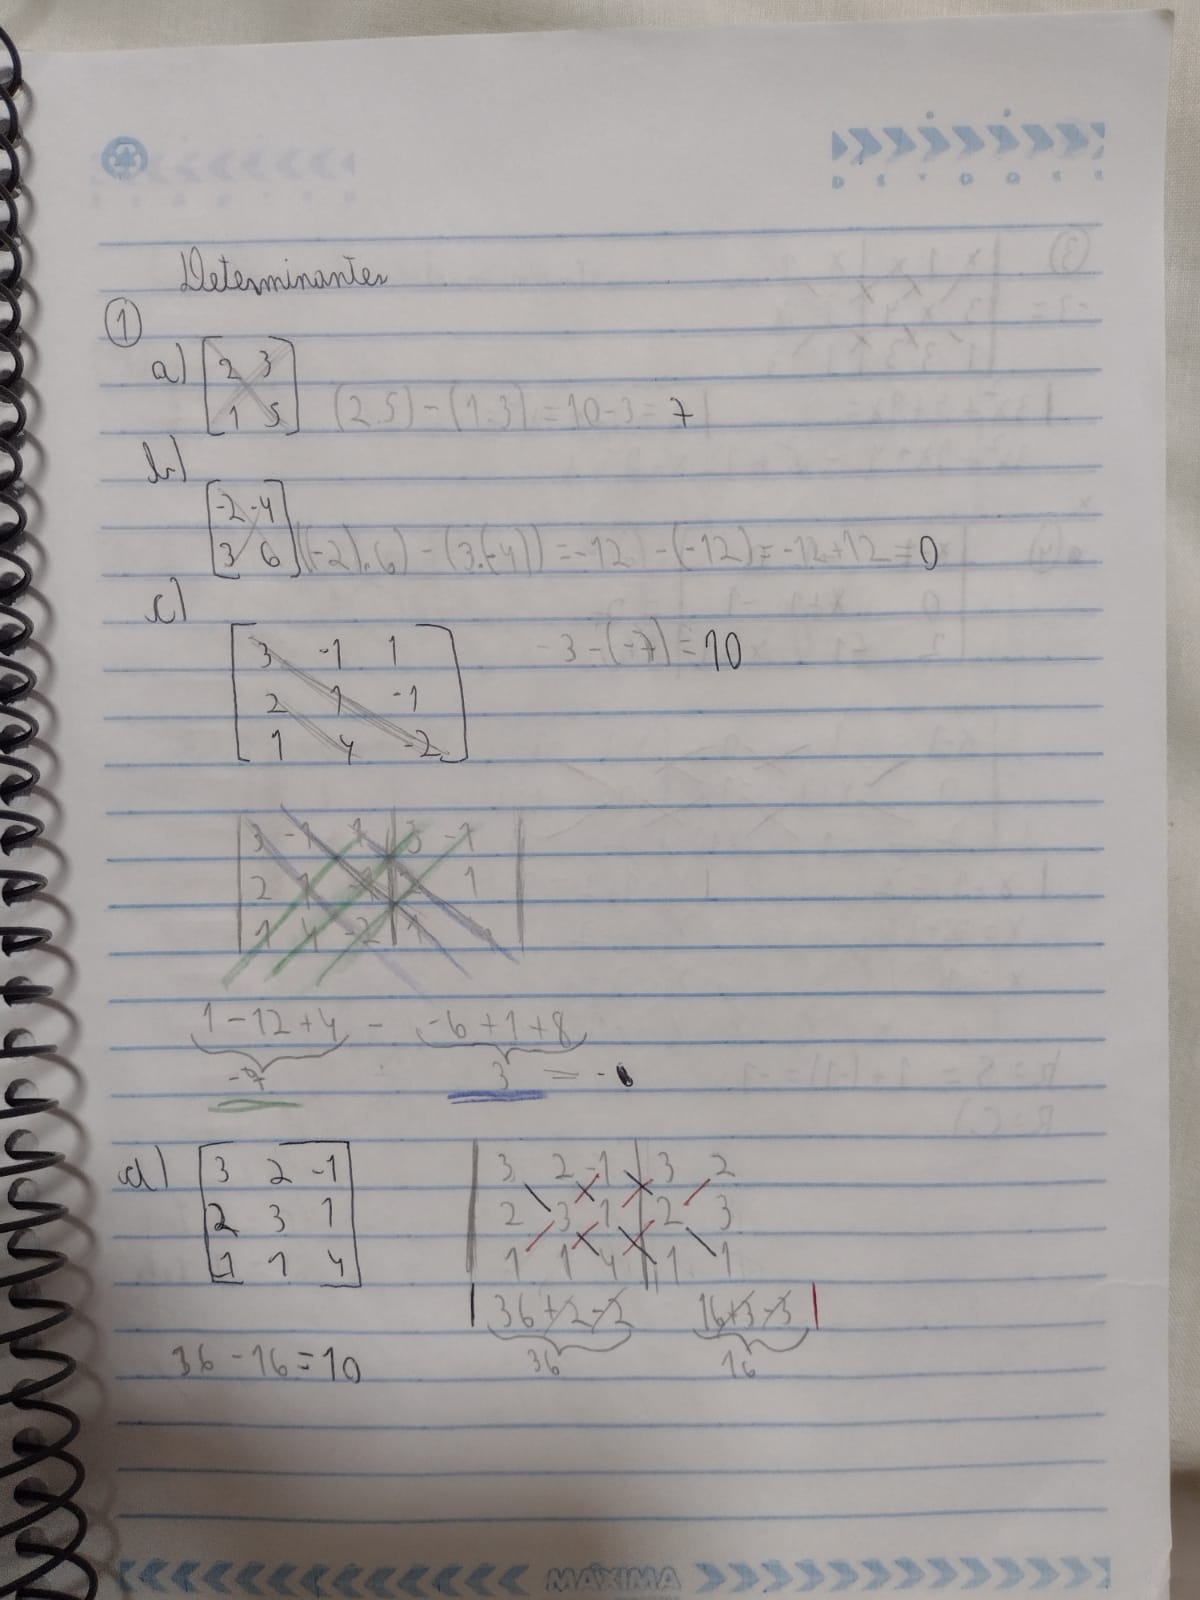 Determinantes
①
a) [2 3
1 5] (2.5) - (1.3) = 10-3 = 7
b)
[-2 -4
3 6] ((-2).6) - (3.(-4)) = -12 - (-12) = -12 + 12 = 0
c)
[3 -1 1
2 1 -1
1 4 -2] -3-(-7) = 10
|3 -1 1 | 3 -1|
2 1 -1 | 2 1
1 4 -2 | 1
1-12+4 - -6+1+8
-7 3 = -
d) [3 2 -1 | 3 2 -1 | 3 2
2 3 1 2 3 1 | 2 3
1 1 4] 1 1 4 | 1 1
| 36+2-2 16+3-3 |
36 - 16 = 10 36 16
MÁXIMA